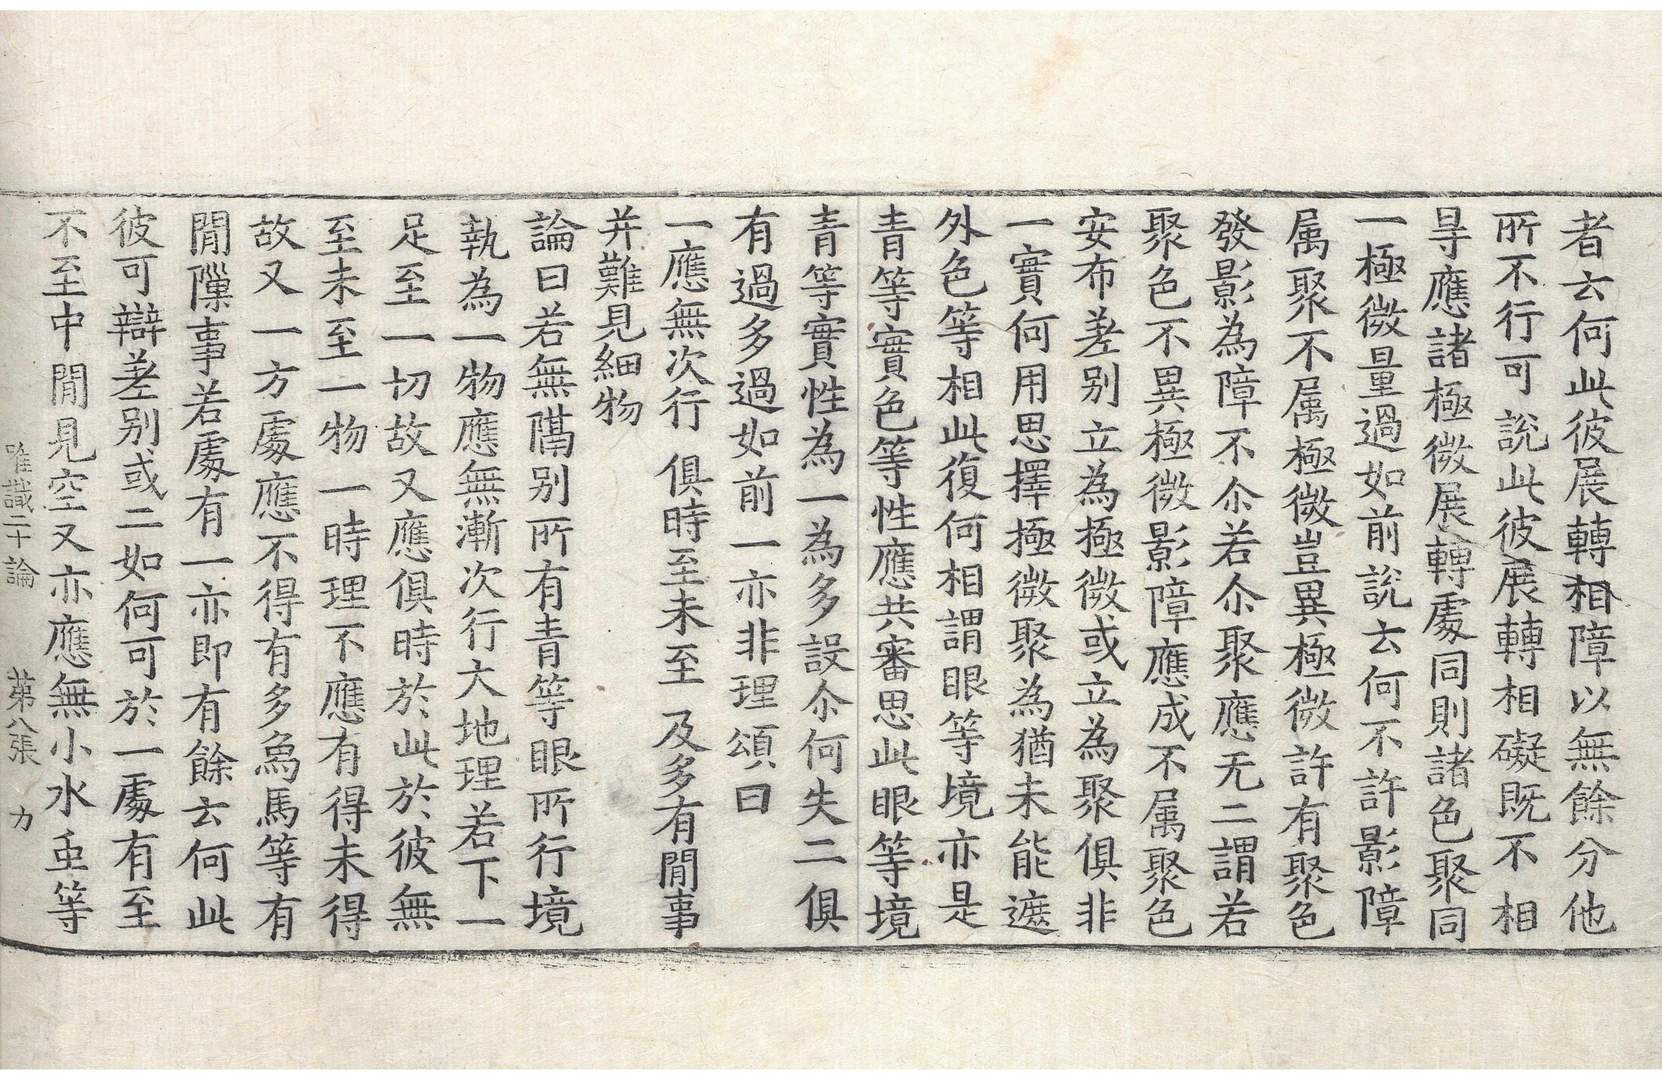 者云何此彼展轉相障以無餘分他
所不行可說此彼展轉相礙既不相
㝵應諸極微展轉處同則諸色聚同
一極微量過如前說云何不許影障
属聚不属極微豈異極微許有聚色
發影為障不尒若尒聚應无二謂若
聚色不異極微影障應成不属聚色
安布差别立為極微或立為聚俱非
一實何用思擇極微聚為猶未能遮
外色等相此復何相謂眼等境亦是
青等實色等性應共審思此眼等境
青等實性為一為多設尒何失二俱
有過多過如前一亦非理頌曰
一應無次行 俱時至未至 及多有閒事
并難見細物
論曰若無隔别所有青等眼所行境
執為一物應無漸次行大地理若下一
足至一切故又應俱時於此於彼無
至未至一物一時理不應有得未得
故又一方處應不得有多象馬等有
閒隟事若處有一亦即有餘云何此
彼可辯差别或二如何可於一處有至
不至中閒見空又亦應無小水虫等
唯識二十論 第八張 力